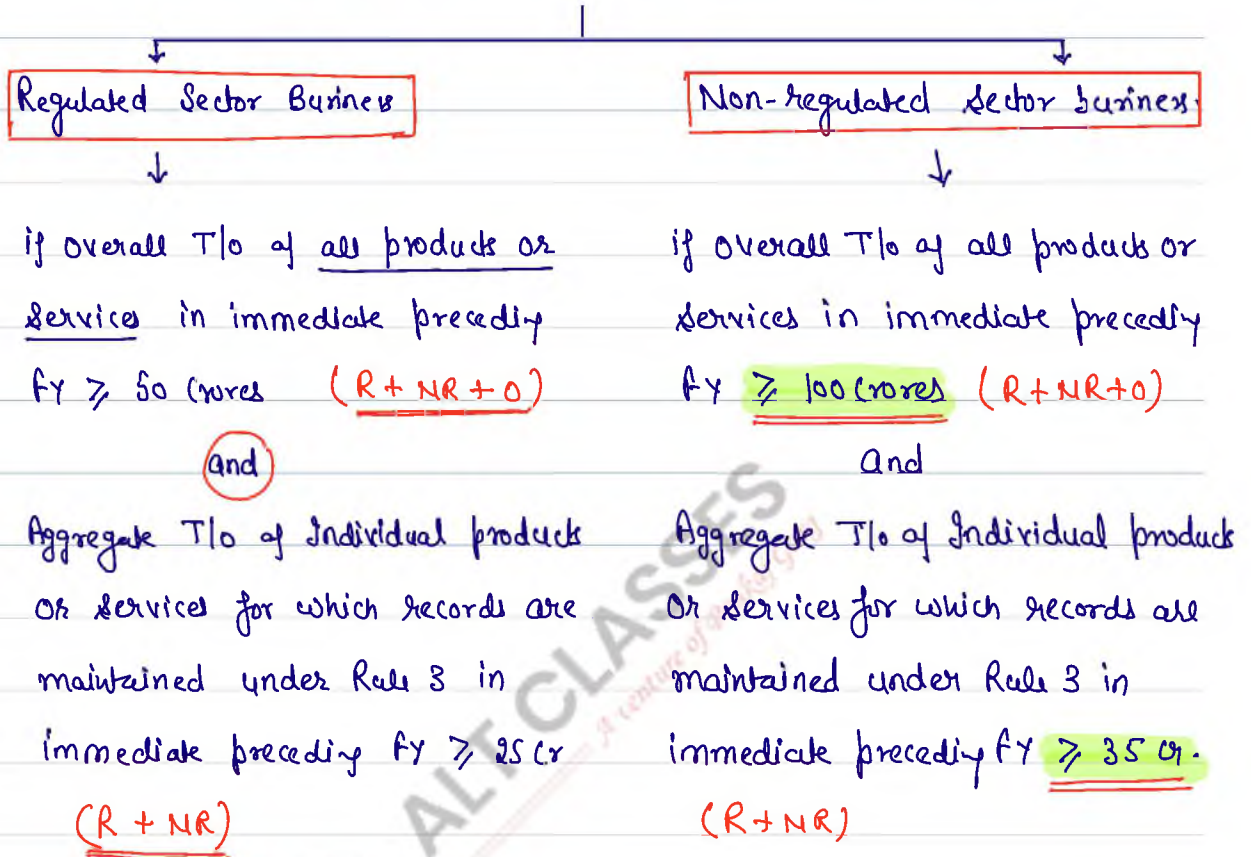 Regulated Sector Business
Non-regulated Sector business.
if overall T/o of all products or
Services in immediate preceding
FY ⩾ 50 Crores (R + NR + O)
and
Aggregate T/o of Individual products
or services for which records are
maintained under Rule 3 in
immediate preceding FY ⩾ 25 Cr
(R + NR)
if overall T/o of all products or
services in immediate preceding
FY ⩾ 100 Crores (R+NR+O)
and
Aggregate T/o of Individual products
or services for which records are
maintained under Rule 3 in
immediate preceding FY ⩾ 35 Cr.
(R+NR)
ALT CLASSES